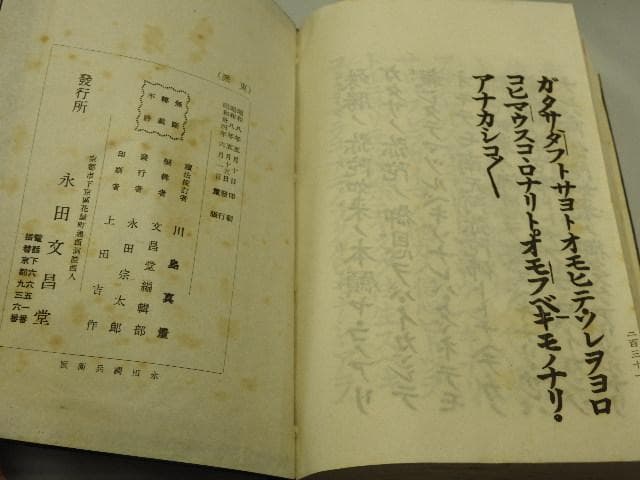 ガタサタフトサヨトオモヒテソレヲヨロ
コヒマウスコヽロナリトオモフベキモノナリ。
アナカシコ〳〵
二百三十一
(東派)
昭和八年五月十日印刷
昭和八年五月十五日發行
重版
無斷
轉載
不許
編輯者 文昌堂編輯部
發行者 永田宗太郎
印刷者 上田吉作
發行所
京都市下京區花屋町通西洞院西入
永田文昌堂
電話下六六五一番
振替京都九三六番
永田調兵衞版